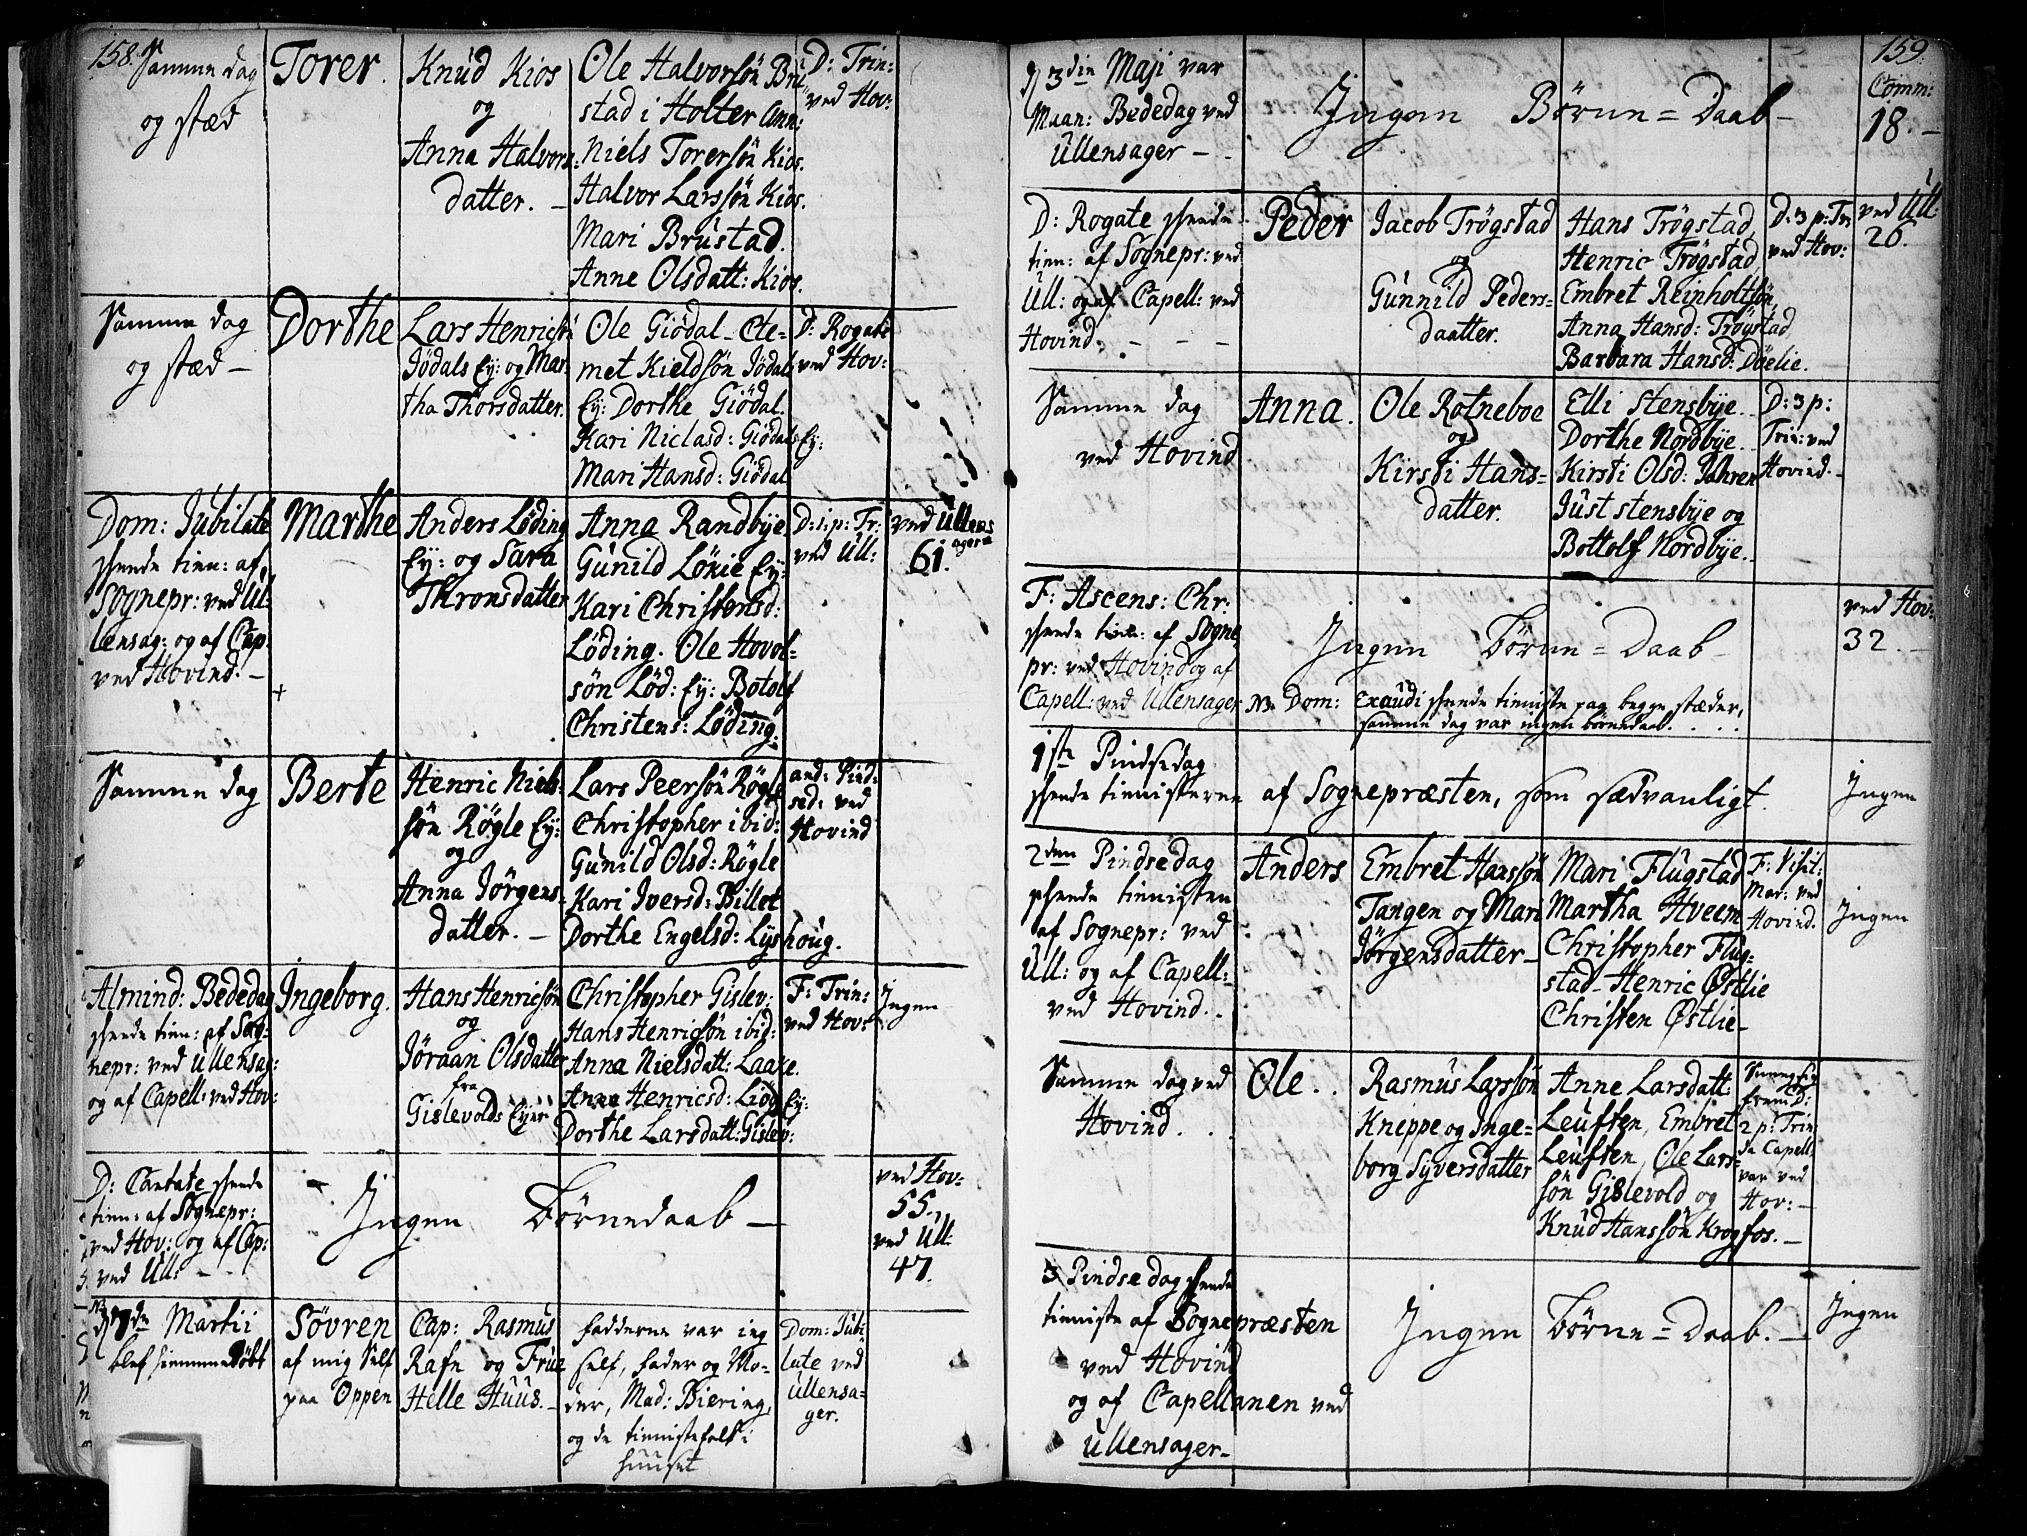 158.
Samme dag
og stæd
Torer.
Knud Kios
og
Anna Halvors:
datter. –
Ole Halvorsön Bru
stad i Holter Ann:
Niels Torersön Kios.
Halvor Larssön Kios.
Mari Brustad.
Anne Olsdatt: Kios.
D: Trin:
ved Hov:
Samme dag
og stæd –
Dorthe
Lars Henricsön
Jödals Ey: og Mar
tha Thorsdatter.
Ole Giödal – Cle-
met Kieldsön Jödals
Ey: Dorthe Giödal.
Kari Niclasd: Giödals Ey:
Mari Hansd: Giödal
D: Rogate
ved Hov:
Dom: Jubilate
skeede tien: af
Sognepr: ved Ul:
lensag: og af Cap:
ved Hovind. –
Marthe
Anders Löding
Ey: og Sara
Thronsdatter
Anna Randbye
Gunild Lökie Ey:
Kari Christensd:
Löding. Ole Hovol-
sön Löd: Ey: Botolf
Christens: Löding.
D: 1 p: Tr:
ved Ull:
ved Ullens
ager
61.
Samme dag
Berte
Henric Niels
sön Rögle Ey:
og
Anna Jörgens
datter. –
Lars Peersön Rögle
Christopher ibid:
Gunild Olsd: Rögle
Kari Iversd: Billet
Dorthe Engelsd: Lyshoug.
and: Pind:
sed: ved
Hovind
Almind: Bededag
skeede tien: af Sog-
nepr: ved Ullensag:
og af Capell: ved Hov:
Ingeborg.
Hans Henricsön
og
Jöraan Olsdatter
fra
Gislevolds Eyer
Christopher Gislev:
Hans Henricsön ibid:
Anna Nielsdatt: Laake.
Anna Henricsd: Liög Ey:
Dorthe Larsdatt: Gislev:
F: Trin:
ved Hov:
Ingen
D: Cantate skeede
tien: af Sognepr:
ved Hov: og af Cap:
ved Ull: –
Ingen Börnedaab –
ved Hov:
55.
ved Ull:
47.
d 7de Martii
blef hiemmedöbt
Sövren
af mig Self
paa Oppen
Cap: Rasmus
Rafn og Frue
Helle Huus. –
Fadderne var ieg
self, Fader og Mo-
der, Mad: Biering,
og de tienistefolk i
huuset
Dom: Jubi
late ved
Ullensa-
ger.
159.
d 3die Maji var
Maan: Bededag ved
Ullensager –
Ingen Börne-Daab –
Comm:
18. –
D: Rogate skeede
tien: af Sognepr: ved
Ull: og af Capell: ved
Hovind. – – –
Peder
Jacob Trögstad
og
Gunnild Peders-
daatter.
Hans Trögstad,
Henric Trögstad
Embret Reinholtsön,
Anna Hansd: Trögstad,
Barbara Hansd: Döelie.
D: 3 p: Tri
ved Hov:
ved Ull
26.
Samme dag
ved Hovind
Anna.
Ole Rotneboe
og
Kirsti Hans-
datter.
Elli Stensbye.
Dorthe Nordbye.
Kirsti Olsd: Jahren
Just Stensbye og
Bottolf Nordbye.
D: 3 p:
Trin: ved
Hovind. –
F: Ascens: Chr:
skeede tien: af Sogne
pr: ved Hovind og af
Capell: ved Ullensager
Ingen Börne-Daab –
NB Dom: Exaudi skeede tieniste paa begge stæder,
samme dag var ingen börnedaab. . . .
ved Hov:
32. –
1ste Pindsedag
skeede tienisterne af Sognepræsten, som sædvanligt.
Ingen
2den Pindsedag
skeede tienisten
af Sognepr: ved
Ull: og af Capell:
ved Hovind. –
Anders
Embret Hanssön
Tangen og Mari
Jörgensdatter –
Mari Flugstad
Martha Hveem
Christopher Flug-
stad – Henric Østlie
Christen Østlie –
F: Visit:
Mar: ved
Hovind.
Ingen
Samme dag ved
Hovind. . .
Ole.
Rasmus Larssön
Kneppe og Inge-
borg Syversdatter
Anne Larsdatt:
Leufsten, Embret
Leufsten, Ole Lars-
sön Gislevold og
Knud Hanssön Krogfos. –
2 p: Trin
da Capell:
var ved
Hov: –
3 Pindsedag skeede
tieniste af Sognepræsten
ved Hovind
og af Capellanen ved
Ullensager –
Ingen Börne-Daab. –
Ingen